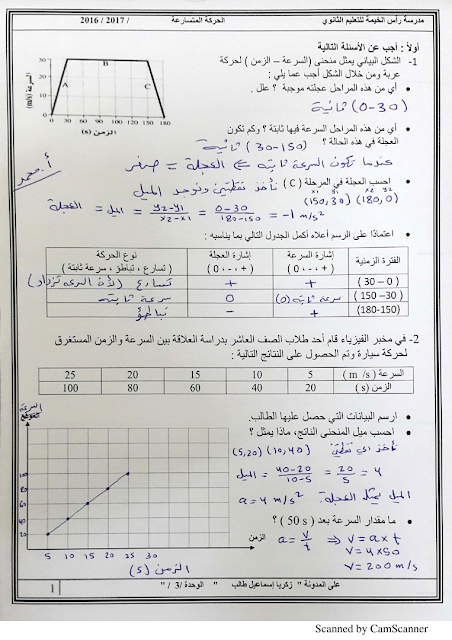 مدرسة رأس الخيمة للتعليم الثانوي
الحركة المتسارعة
2016 / 2017 /
أولاً : أجب عن الأسئلة التالية
1- الشكل البياني يمثل منحنى (السرعة – الزمن ) لحركة
عربة ومن خلال الشكل أجب عما يلي :
أي من هذه المراحل عجلته موجبة ؟ علل .
(0-30) ثانية
أي من هذه المراحل السرعة فيها ثابتة ؟ وكم تكون
العجلة في هذه الحالة ؟ (30-150) ثانية
عندما تكون السرعة ثابتة ⇐ العجلة = صفر
السرعة (m/s)
30
20
10
0
A
B
C
0 30 60 90 120 150 180
الزمن (s)
أ. محمد
احسب العجلة في المرحلة ( C ) نأخذ نقطتين ونوجد الميل
x1 y1 x2 y2
(150,30) (180,0)
العجلة = الميل = y2-y1 / x2-x1 = 0-30 / 180-150 = -1 m/s²
اعتمادًا على الرسم أعلاه أكمل الجدول التالي بما يناسبه :
الفترة الزمنية
إشارة السرعة ( + ، - ، 0 )
إشارة العجلة ( + ، - ، 0 )
نوع الحركة ( تسارع ، تباطؤ ، سرعة ثابتة )
(30 – 0 ) + + تسارع (لأن السرعة تزداد)
(150 –30) سرعة ثابتة (0) 0 سرعة ثابتة
(180-150) + - تباطؤ
2- في مخبر الفيزياء قام أحد طلاب الصف العاشر بدراسة العلاقة بين السرعة والزمن المستغرق
لحركة سيارة وتم الحصول على النتائج التالية :
السرعة ( m/s ) 5 10 15 20 25
الزمن (s) 20 40 60 80 100
ارسم البيانات التي حصل عليها الطالب.
احسب ميل المنحنى الناتج، ماذا يمثل ؟
(5,20) (10,40) نأخذ أي نقطتين
الميل = 40-20 / 10-5 = 20 / 5 = 4
a = 4 m/s² الميل يمثل العجلة.
ما مقدار السرعة بعد ( 50 s ) ؟
a = v/t ⇒ v = a x t
v = 4 x 50
v = 200 m/s
السرعة
100
80
60
40
20
5 10 15 20 25 30
الزمن
الزمن (s)
على المدونة " زكريا إسماعيل طالب " الوحدة /3 / "
1
Scanned by CamScanner